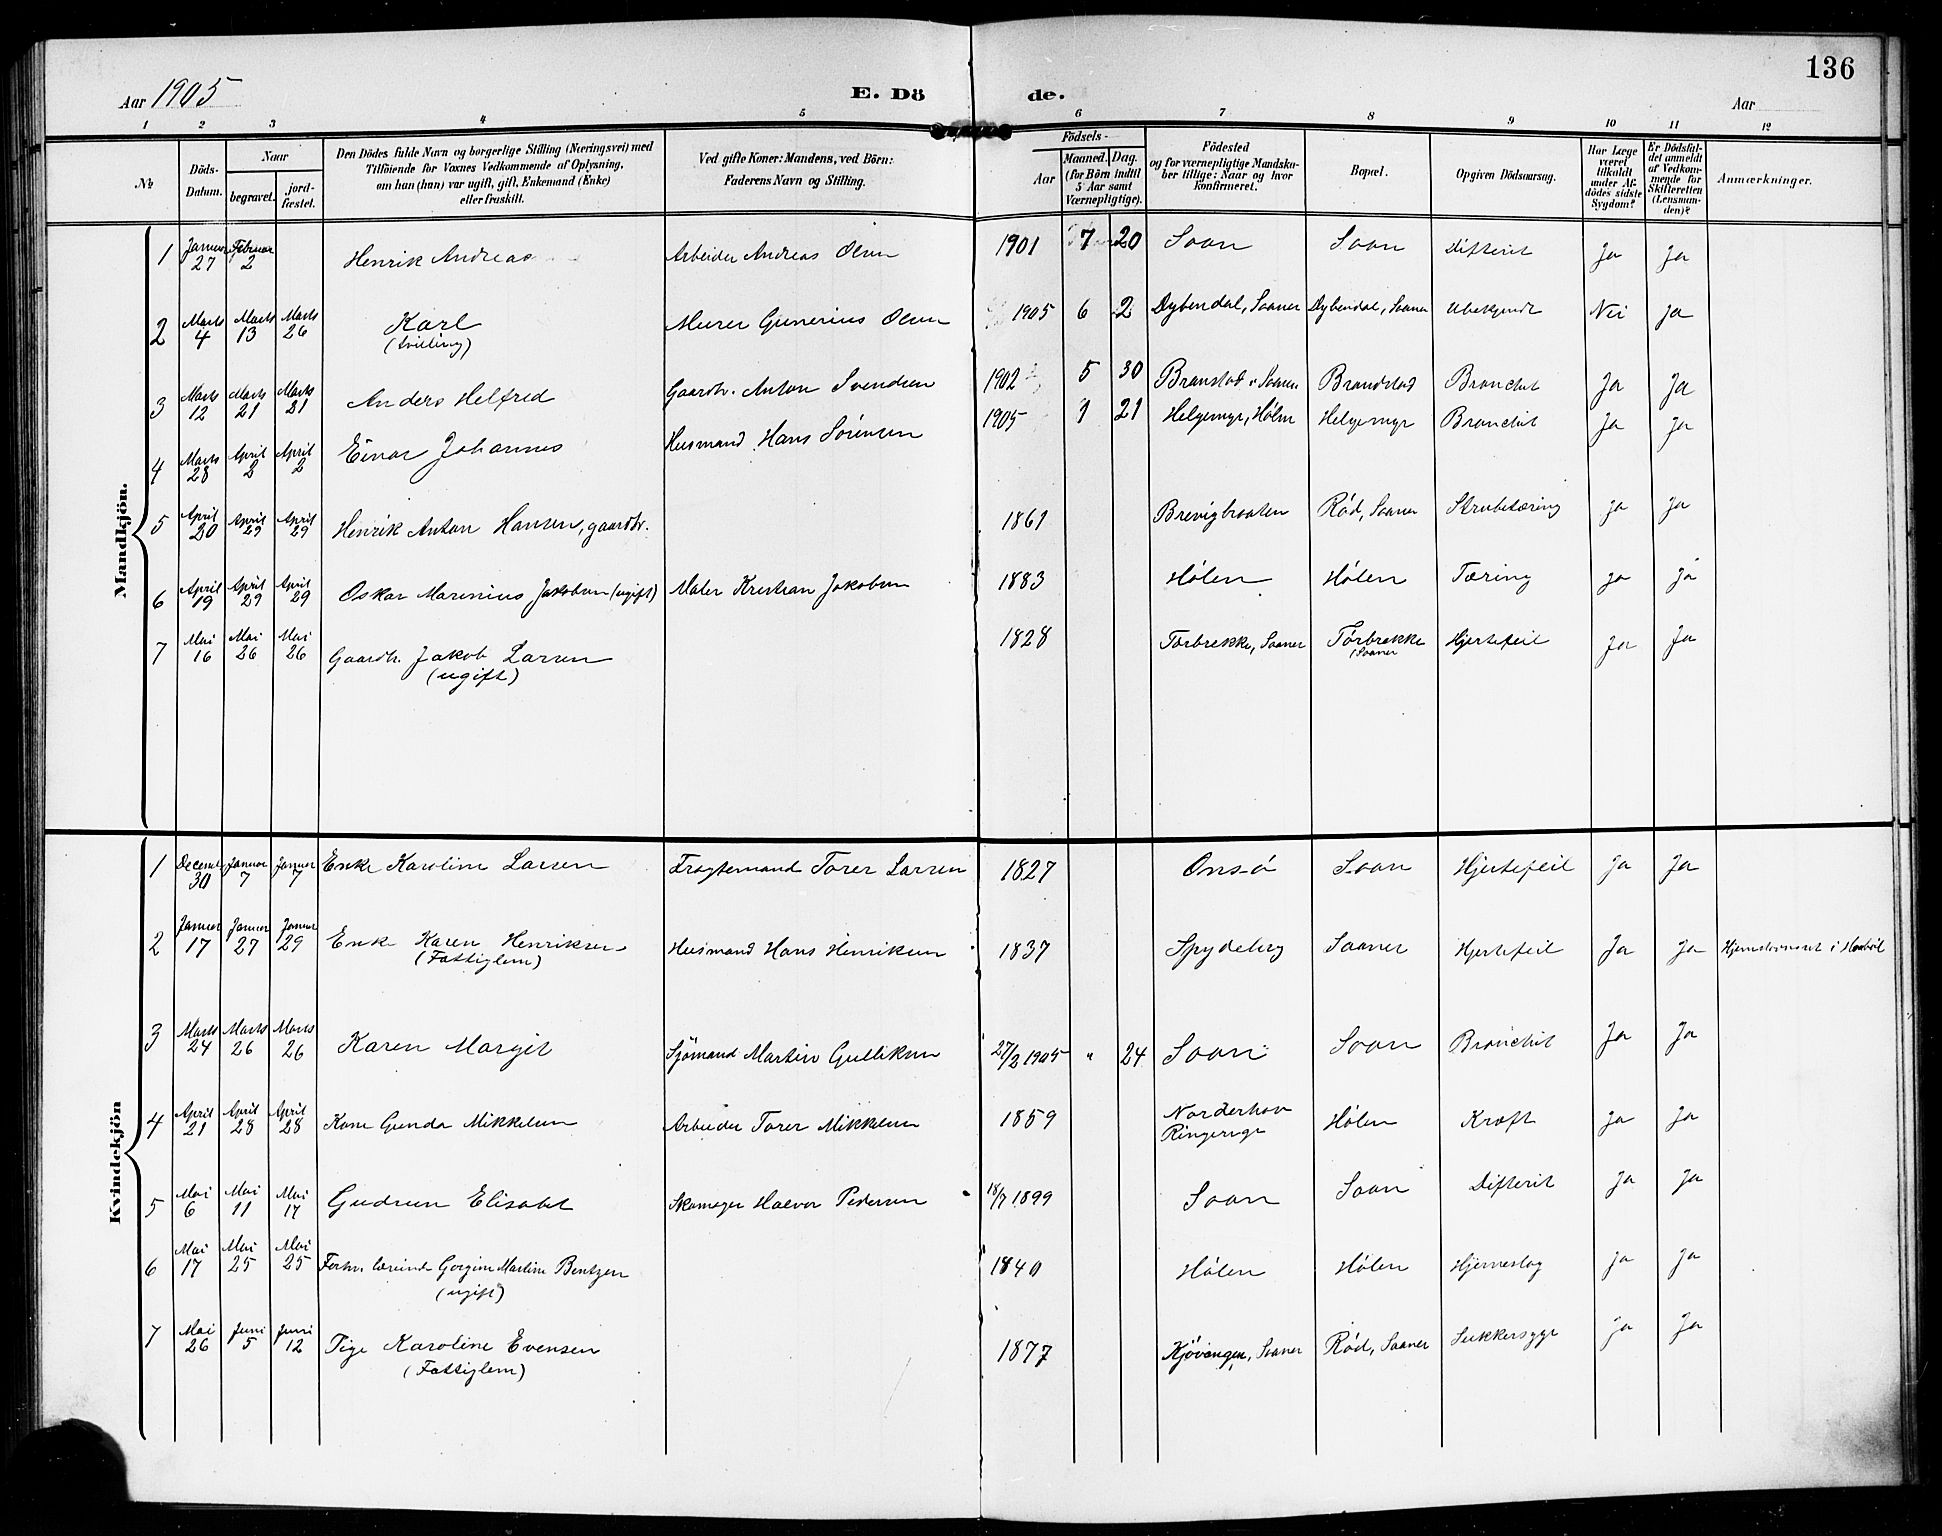 136
Aar 1905
E. Dö de.
Aar
1 2 3 4 5 6 7 8 9 10 11 12
No
Döds-Datum.
Naar
begravet.
jord-fæstet.
Den Dödes fulde Navn og borgerlige Stilling (Næringsvei) med
Tilföiende for Voxnes Vedkommende af Oplysning,
om han (hun) var ugift, gift, Enkemand (Enke)
eller fraskilt.
Ved gifte Koner: Mandens, ved Börn:
Faderens Navn og Stilling.
Födsels-
Aar
Maaned. Dag.
(for Börn indtil
5 Aar samt
Værnepligtige).
Födested
og for værnepligtige Mandska-
ber tillige: Naar og hvor
konfirmeret.
Bopæl.
Opgiven Dödsaarsag.
Har Læge
været
tilkaldt
under Af-
dödes sidste
Sygdom?
Er Dödsfal-
det anmeldt
af Vedkom-
mende for
Skifteretten
(Lensman-
den)?
Anmærkninger.
Mandkjön.
1 Januar 27 Februar 2 Henrik Andreas Arbeider Andreas Olsen 1901 7 20 Soon Soon Difterit Ja Ja
2 Marts 4 Marts 13 Marts 26 Karl Murer Gunerius Olsen 1905 6 2 Dybendal, Saaner Dybendal, Saaner Ubekjendt Nei Ja
(tvilling)
3 Marts 12 Marts 21 Marts 21 Anders Helfred Gaardbr. Anton Svendsen 1902 5 30 Branstad, Saaner Brandstad Bronchit Ja Ja
4 Marts 28 April 2 April 2 Einar Johannes Husmand Hans Sörensen 1905 1 21 Helgemyr, Hölen Helgemyr Bronchit Ja Ja
5 April 20 April 29 April 29 Henrik Anton Hansen, gaardbr. 1861 Brevigbraaten Röd, Saaner Strubetæring Ja Ja
6 April 19 April 29 April 29 Oskar Marinius Jakobsen (ugift) Maler Kristian Jakobsen 1883 Hölen Hölen Tæring Ja Ja
7 Mai 16 Mai 26 Mai 26 Gaardbr. Jakob Larsen 1828 Torbrekke, Saaner Törbrekke, Saaner Hjertefeil Ja Ja
(ugift)
Kvindekjön
1 Decemb 30 Januar 7 Januar 7 Enke Karoline Larsen Fragtemand Torer Larsen 1827 Onsö Soon Hjertefeil Ja Ja
2 Januar 17 Januar 27 Januar 29 Enke Karen Henriksen Husmand Hans Henriksen 1837 Spydeberg Saaner Hjertefeil Ja Ja Hjemstavnsret i Hobøl
(Fattiglem)
3 Marts 24 Marts 26 Marts 26 Karen Margit Sjömand Martin Gulliksen 27/2 1905 " 24 Soon Soon Bronchit Ja Ja
4 April 21 April 28 April 28 Kone Gunda Mikkelsen Arbeider Torer Mikkelsen 1859 Norderhov Ringerige Hölen Kræft Ja Ja
5 Mai 6 Mai 11 Mai 17 Gudrun Elisabet Skomager Halvor Pedersen 18/7 1899 Soon Soon Difterit Ja Ja
6 Mai 17 Mai 25 Mai 25 Forhv. lærerinde Gorgine Martine Bentzen 1840 Hölen Hölen Hjerneslag Ja Ja
(ugift)
7 Mai 26 Juni 5 Juni 12 Pige Karoline Evensen 1877 Kjövangen, Saaner Röd, Saaner Sukkersyge Ja Ja
(Fattiglem)